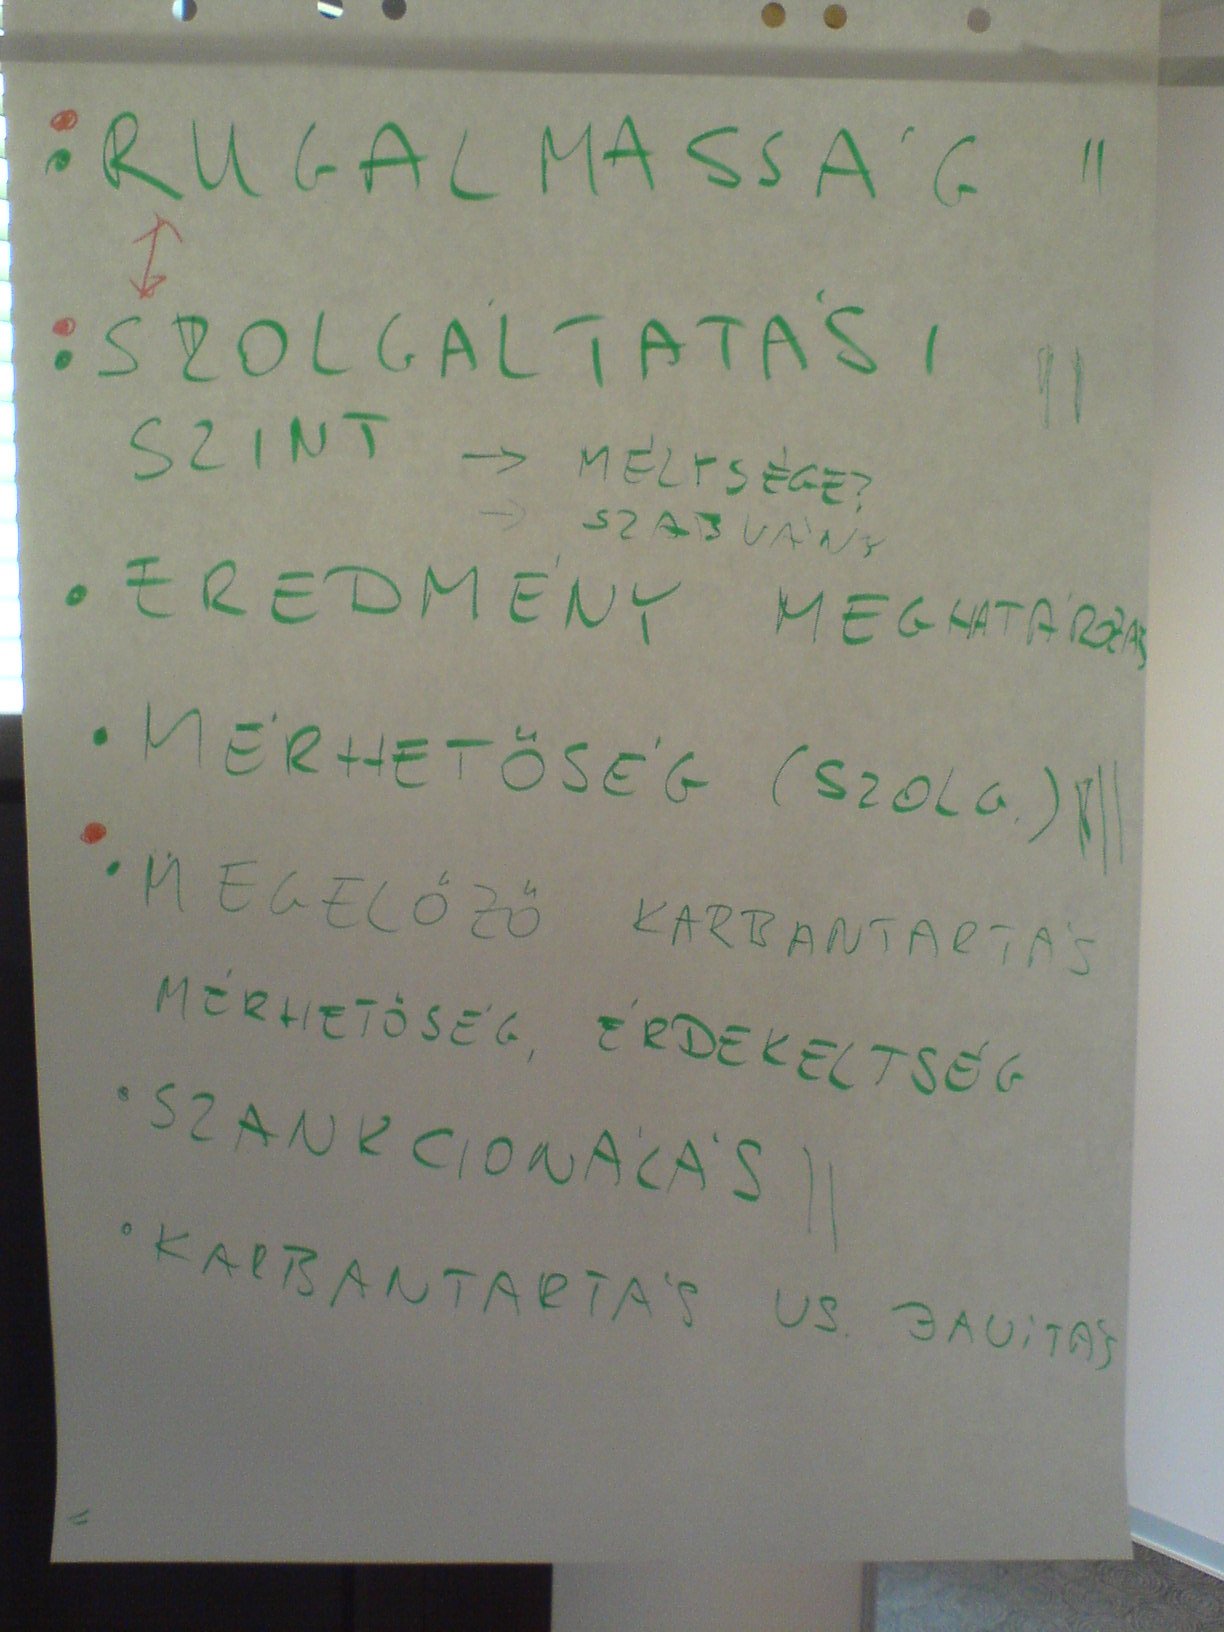 • RUGALMASSÁG ||
• SZOLGÁLTATÁSI ||
SZINT → MÉLYSÉGE?
→ SZABVÁNY
• EREDMÉNY MEGHATÁROZÁS
• MÉRHETŐSÉG (SZOLG.) |||
• MEGELŐZŐ KARBANTARTÁS
MÉRHETŐSÉG, ÉRDEKELTSÉG
• SZANKCIONÁLÁS ||
• KARBANTARTÁS VS. JAVÍTÁS